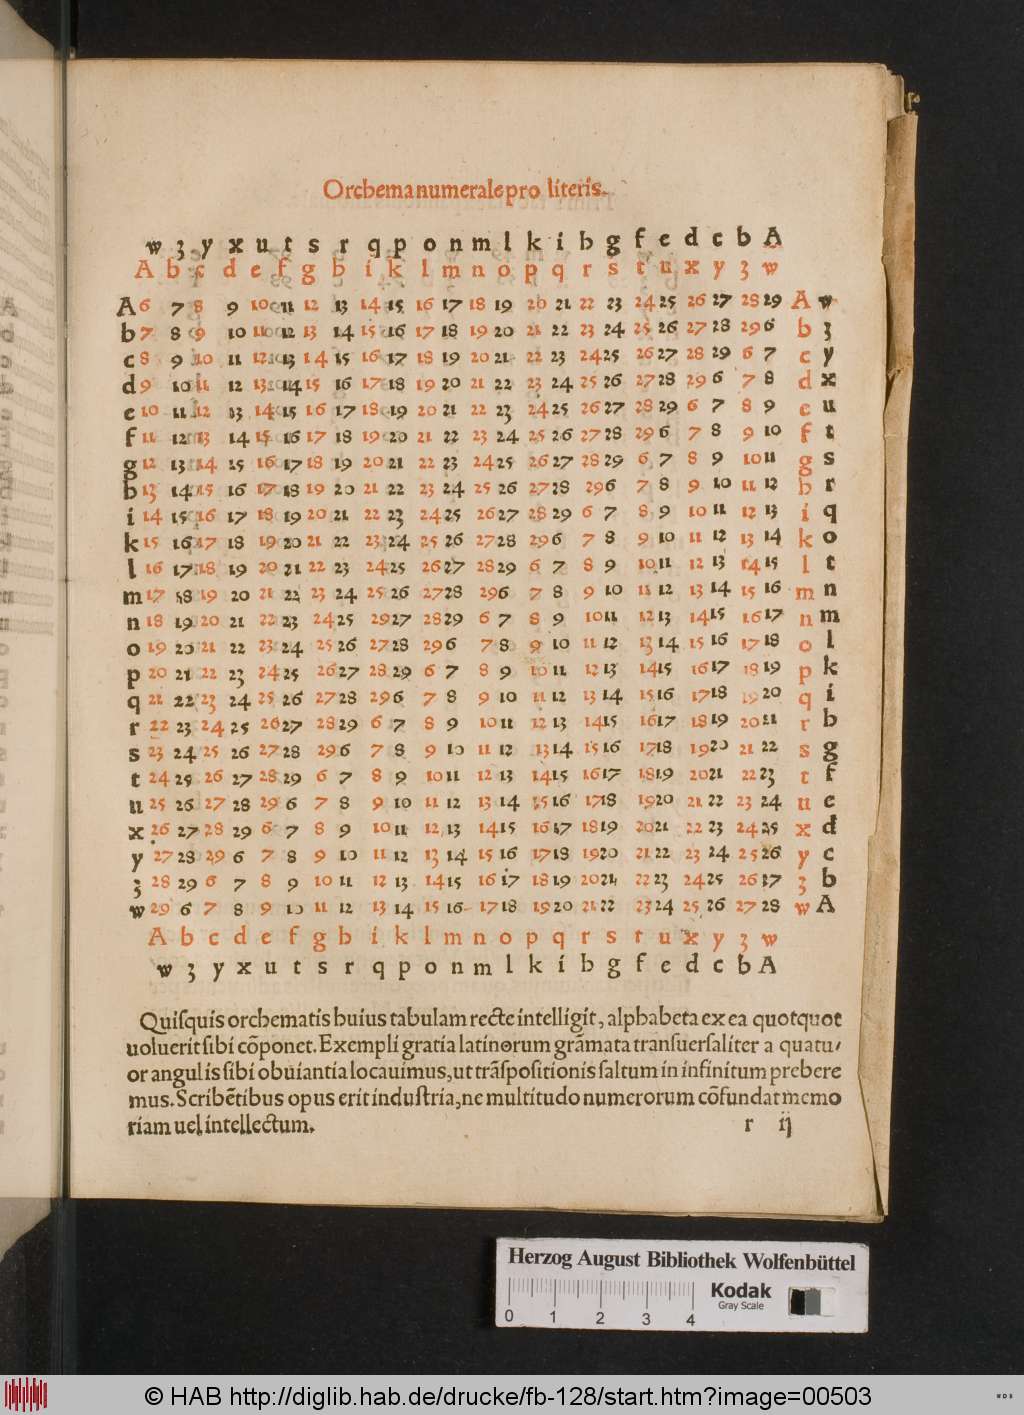 Orchema numerale pro literis.
w z y x u t s r q p o n m l k i h g f e d c b A
A b c d e f g h i k l m n o p q r s t u x y z w
A 6 7 8 9 10 11 12 13 14 15 16 17 18 19 20 21 22 23 24 25 26 27 28 29 A w
b 7 8 9 10 11 12 13 14 15 16 17 18 19 20 21 22 23 24 25 26 27 28 29 6 b z
c 8 9 10 11 12 13 14 15 16 17 18 19 20 21 22 23 24 25 26 27 28 29 6 7 c y
d 9 10 11 12 13 14 15 16 17 18 19 20 21 22 23 24 25 26 27 28 29 6 7 8 d x
e 10 11 12 13 14 15 16 17 18 19 20 21 22 23 24 25 26 27 28 29 6 7 8 9 e u
f 11 12 13 14 15 16 17 18 19 20 21 22 23 24 25 26 27 28 29 6 7 8 9 10 f t
g 12 13 14 15 16 17 18 19 20 21 22 23 24 25 26 27 28 29 6 7 8 9 10 11 g s
h 13 14 15 16 17 18 19 20 21 22 23 24 25 26 27 28 29 6 7 8 9 10 11 12 h r
i 14 15 16 17 18 19 20 21 22 23 24 25 26 27 28 29 6 7 8 9 10 11 12 13 i q
k 15 16 17 18 19 20 21 22 23 24 25 26 27 28 29 6 7 8 9 10 11 12 13 14 k o
l 16 17 18 19 20 21 22 23 24 25 26 27 28 29 6 7 8 9 10 11 12 13 14 15 l t
m 17 18 19 20 21 22 23 24 25 26 27 28 29 6 7 8 9 10 11 12 13 14 15 16 m n
n 18 19 20 21 22 23 24 25 29 27 28 29 6 7 8 9 10 11 12 13 14 15 16 17 n m
o 19 20 21 22 23 24 25 26 27 28 29 6 7 8 9 10 11 12 13 14 15 16 17 18 o l
p 20 21 22 23 24 25 26 27 28 29 6 7 8 9 10 11 12 13 14 15 16 17 18 19 p k
q 21 22 23 24 25 26 27 28 29 6 7 8 9 10 11 12 13 14 15 16 17 18 19 20 q i
r 22 23 24 25 26 27 28 29 6 7 8 9 10 11 12 13 14 15 16 17 18 19 20 21 r h
s 23 24 25 26 27 28 29 6 7 8 9 10 11 12 13 14 15 16 17 18 19 20 21 22 s g
t 24 25 26 27 28 29 6 7 8 9 10 11 12 13 14 15 16 17 18 19 20 21 22 23 t f
u 25 26 27 28 29 6 7 8 9 10 11 12 13 14 15 16 17 18 19 20 21 22 23 24 u e
x 26 27 28 29 6 7 8 9 10 11 12 13 14 15 16 17 18 19 20 21 22 23 24 25 x d
y 27 28 29 6 7 8 9 10 11 12 13 14 15 16 17 18 19 20 21 22 23 24 25 26 y c
z 28 29 6 7 8 9 10 11 12 13 14 15 16 17 18 19 20 21 22 23 24 25 26 27 z b
w 29 6 7 8 9 10 11 12 13 14 15 16 17 18 19 20 21 22 23 24 25 26 27 28 w A
A b c d e f g h i k l m n o p q r s t u x y z w
w z y x u t s r q p o n m l k i h g f e d c b A
Quiſquis orchematis huius tabulam recte intelligit, alphabeta ex ea quotquot
uoluerit ſibi cõponet. Exempli gratia latinorum grãmata tranſuerſaliter a quatu/
or angulis ſibi obuiantia locauimus, ut trãſpoſitionis ſaltum in infinitum prebere
mus. Scribẽtibus opus erit induſtria, ne multitudo numerorum cõfundat memo
riam uel intellectum.
r ij
Herzog August Bibliothek Wolfenbüttel
0 1 2 3 4
Kodak
Gray Scale
© HAB http://diglib.hab.de/drucke/fb-128/start.htm?image=00503